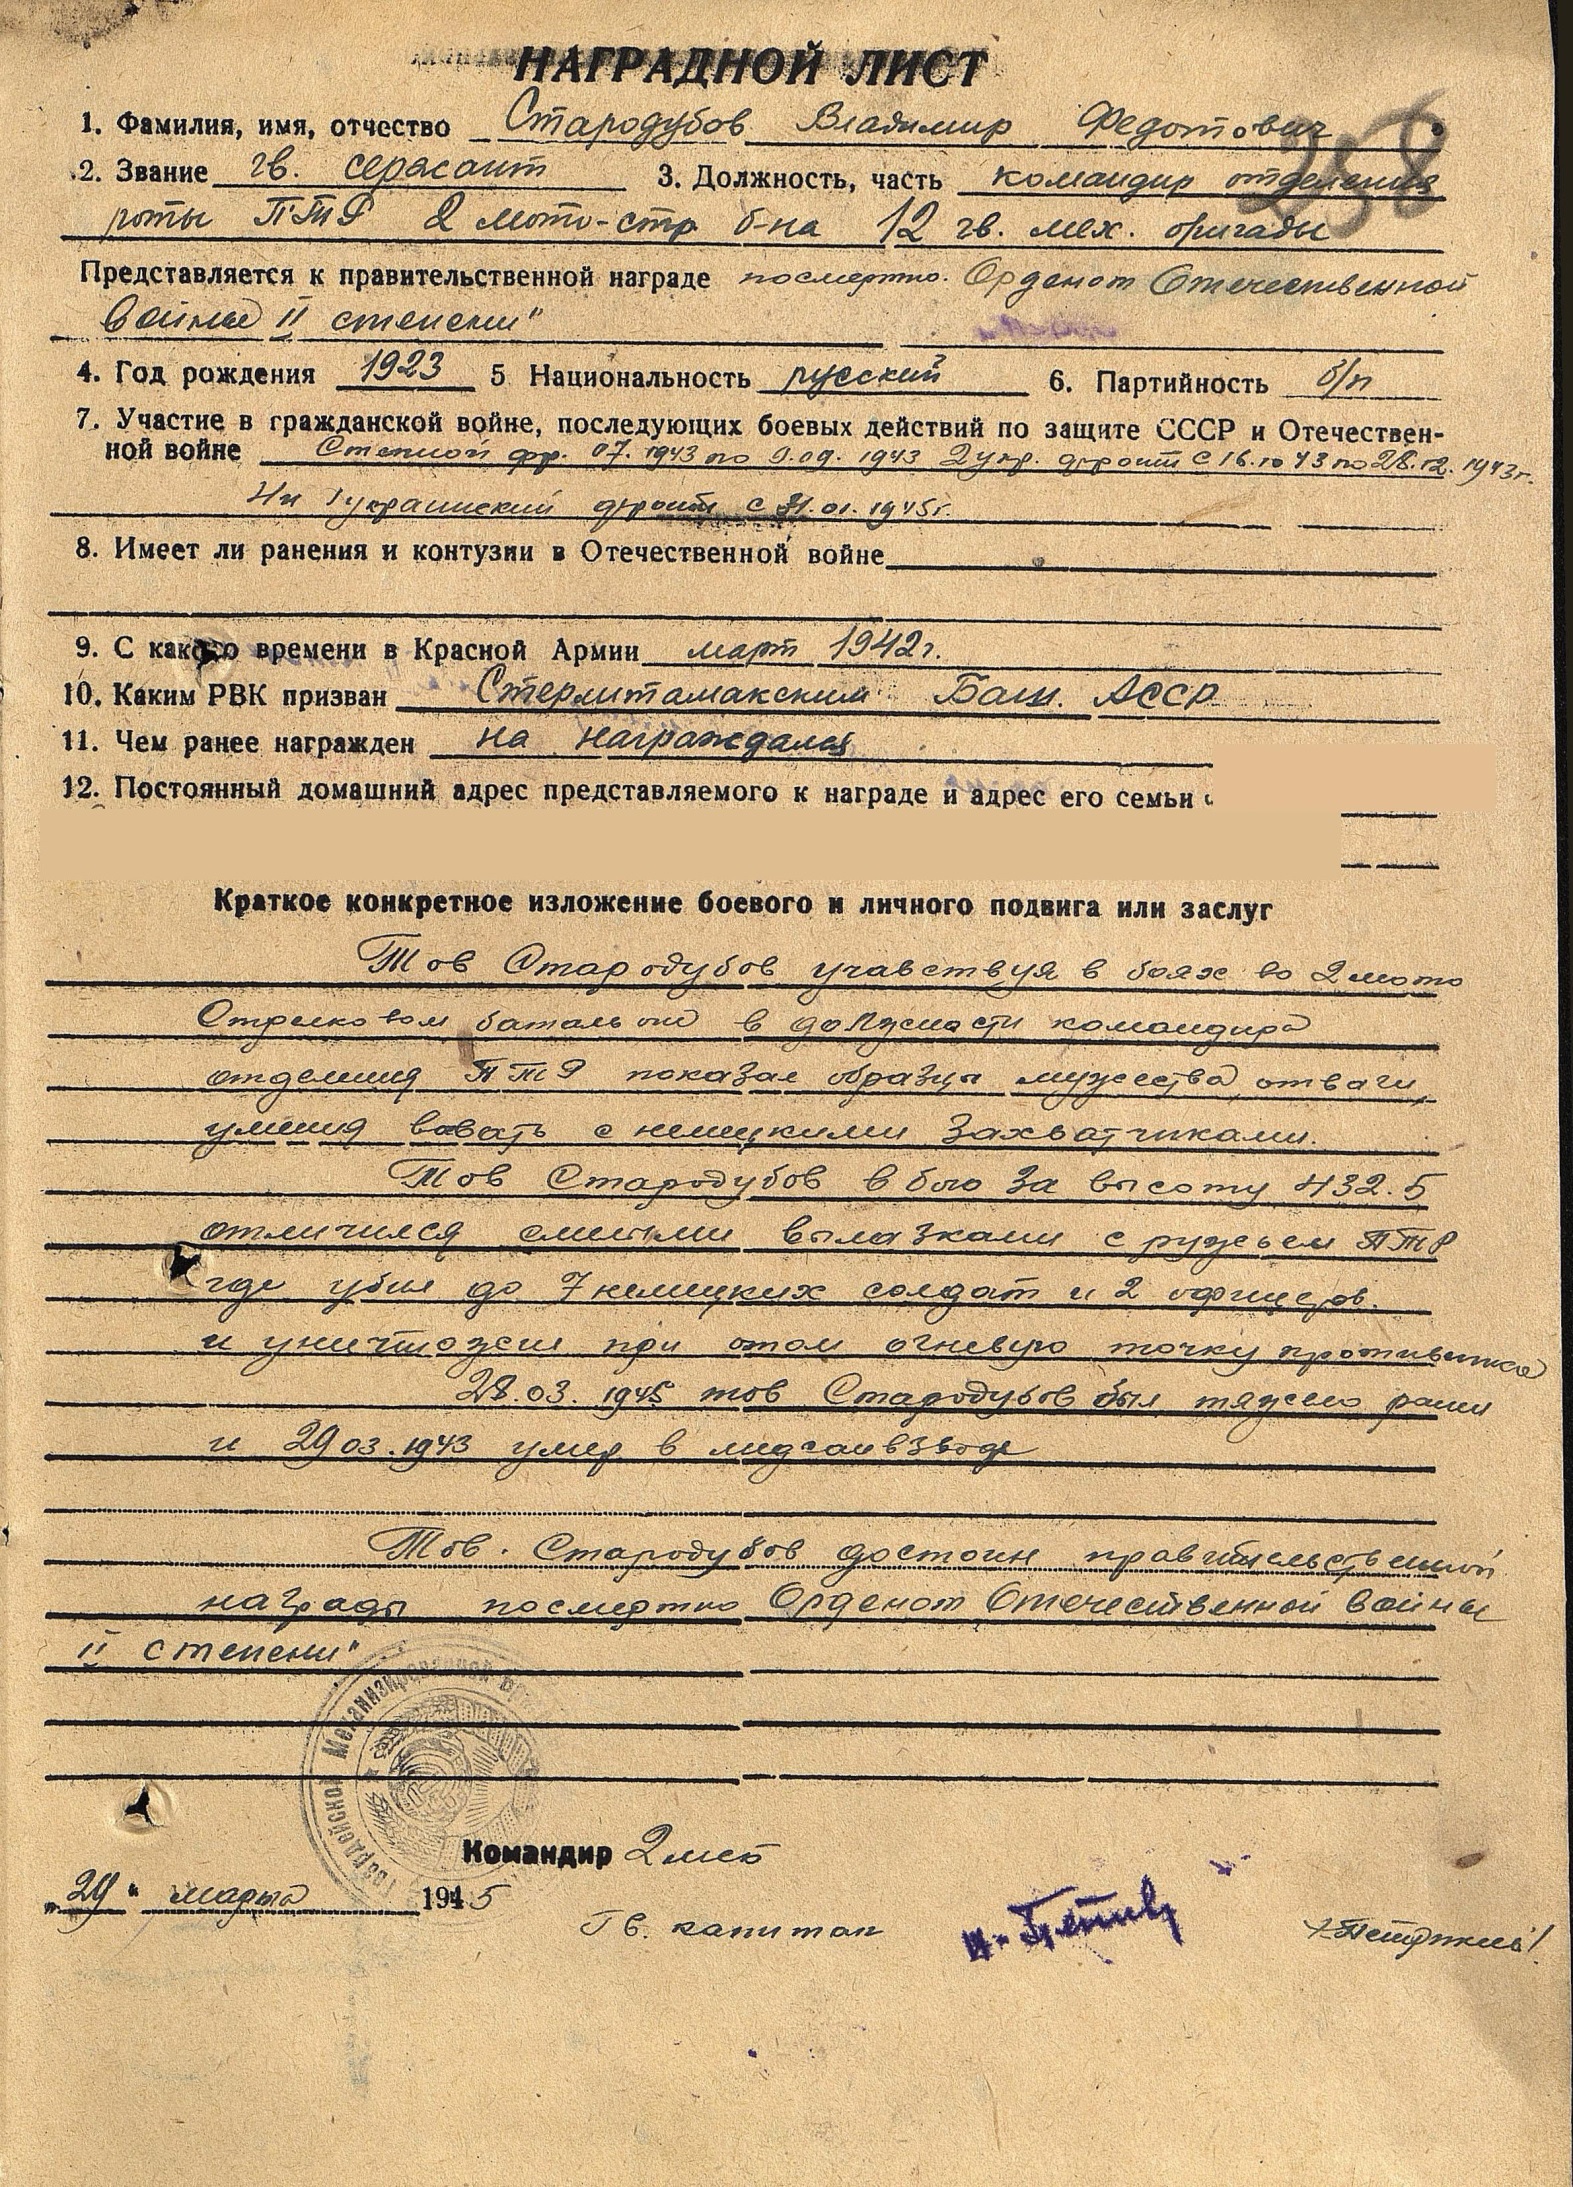 НАГРАДНОЙ ЛИСТ
258
1. Фамилия, имя, отчество Стародубов Владимир Федотович
2. Звание гв. сержант 3. Должность, часть командир отделения
роты ПТР 2 мото-стр б-на 12 гв. мех. бригады
Представляется к правительственной награде посмертно. Орденом Отечественной
войны II степени"
4. Год рождения 1923 5 Национальность русский 6. Партийность б/п
7. Участие в гражданской войне, последующих боевых действий по защите СССР и Отечествен-
ной войне Степной фр. 07.1943 по 9.09.1943 2 укр. фронт с 16.10 43 по 28.12.1943г.
украинский фронт с 21.01.1945г.
8. Имеет ли ранения и контузии в Отечественной войне
9. С какого времени в Красной Армии март 1942г.
10. Каким РВК призван Стерлитамакским Баш. АССР
11. Чем ранее награжден на награждался
12. Постоянный домашний адрес представляемого к награде и адрес его семьи
Краткое конкретное изложение боевого и личного подвига или заслуг
Тов Стародубов учавствуя в боях во 2 мото
Стрелковом батальоне в должности командира
отделения ПТР показал образцы мужества, отваги,
умения воевать с немецкими захватчиками.
Тов Стародубов в бою за высоту 432.5
отличился смелыми вылазками с ружьем ПТР
где убил до 7 немецких солдат и 2 офицеров.
и уничтожил при этом огневую точку противника
28.03.1945 тов Стародубов был тяжело ранен
и 29 03.1943 умер в медсанвзводе
Тов. Стародубов достоин правительственной
награды посмертно Орденом Отечественной войны
II степени"
Гвардейской Механизированной
Командир 2 мсб
"29" марта 1945
Гв. капитан